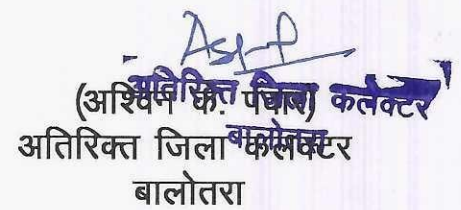 अतिरिक्त जिला कलेक्टर
बालोतरा
(अश्विन के. पंवार)
अतिरिक्त जिला कलक्टर
बालोतरा